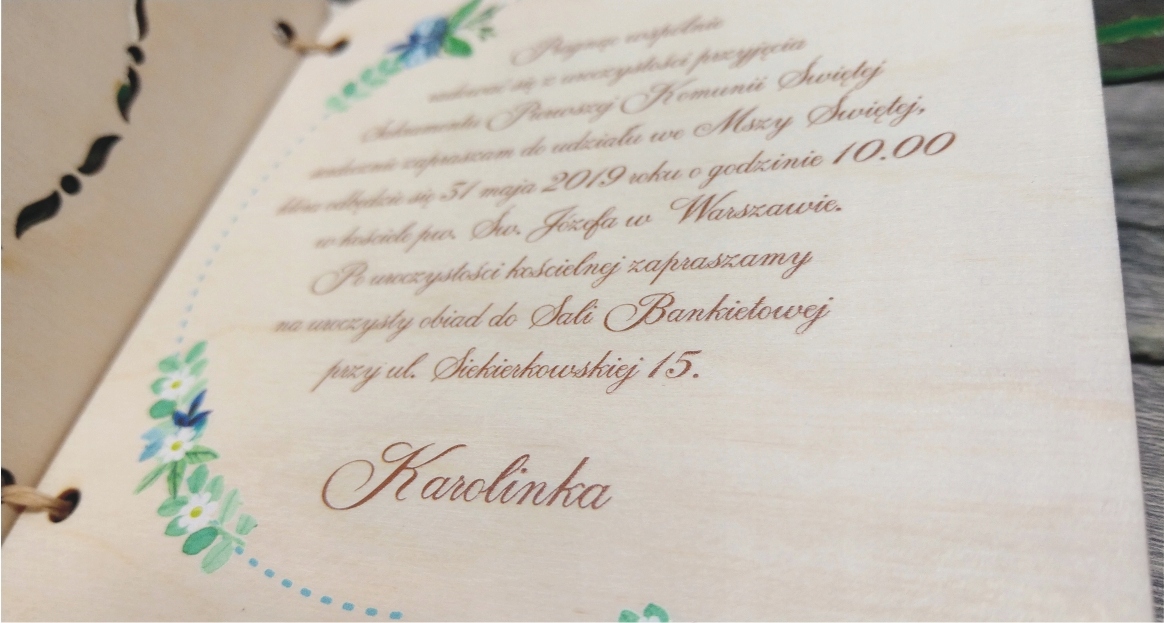 Pragnąc wspólnie
radować się z uroczystości przyjęcia
Sakramentu Pierwszej Komunii Świętej
serdecznie zapraszam do udziału we Mszy Świętej,
która odbędzie się 31 maja 2019 roku o godzinie 10.00
w kościele pw. Św. Józefa w Warszawie.
Po uroczystości kościelnej zapraszamy
na uroczysty obiad do Sali Bankietowej
przy ul. Siekierkowskiej 15.
Karolinka